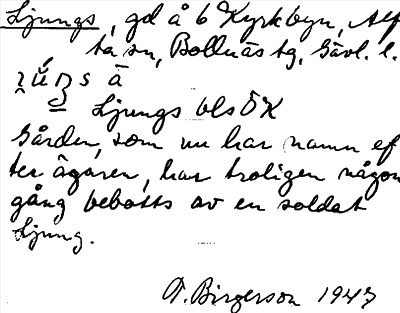 Ljungs, gd å 6 Kyrkbyn, Alf
ta sn, Bollnäs tg, Gävl. l.
Ljungs vls ÖK
Gården, som nu har namn ef
ter ägaren, har troligen någon
gång bebotts av en soldat
Ljung.
T. Birgerson 1947